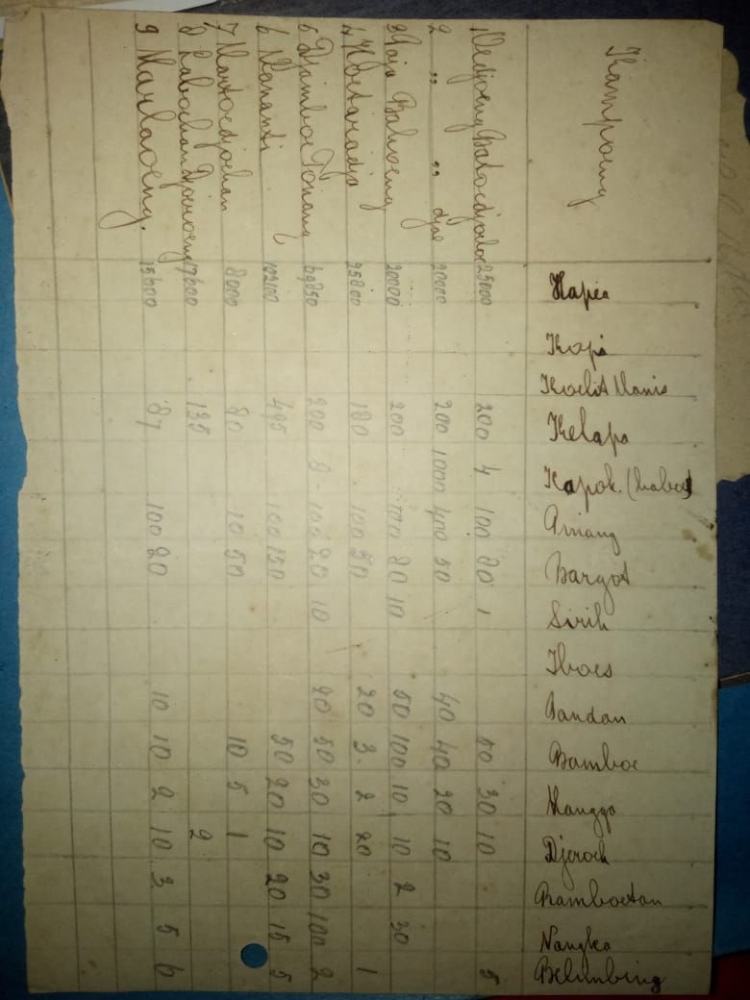 Kampoeng Hapea Kopi Koelit Manis Kelapa Kapok. Pinang Bargot Sirih Iboes Pandan Bamboe Mangga Djeroek Ramboetan Nangka Belimbing
1 Oedjoeng Batoe djoeloe 25000 200 4 100 80 1 50 30 10 5
2 ,, ,, djae 20000 200 1000 400 50 40 40 20 10
3 Raja 20000 200 100 20 10 50 100 10 10 2 30
4 Koetaradja 25800 180 100 50 20 3 2 20 1
5 Djamboe Tonang 200 8 100 20 10 20 50 30 10 30 100 2
6 Mananti 102100 495 100 150 50 20 10 20 15 5
7 8000 80 10 50 10 5 1
8 Laboehan Djoeroeng 17600 135 2
9 Marlaoeng. 15600 87 100 20 10 10 2 10 3 5 6